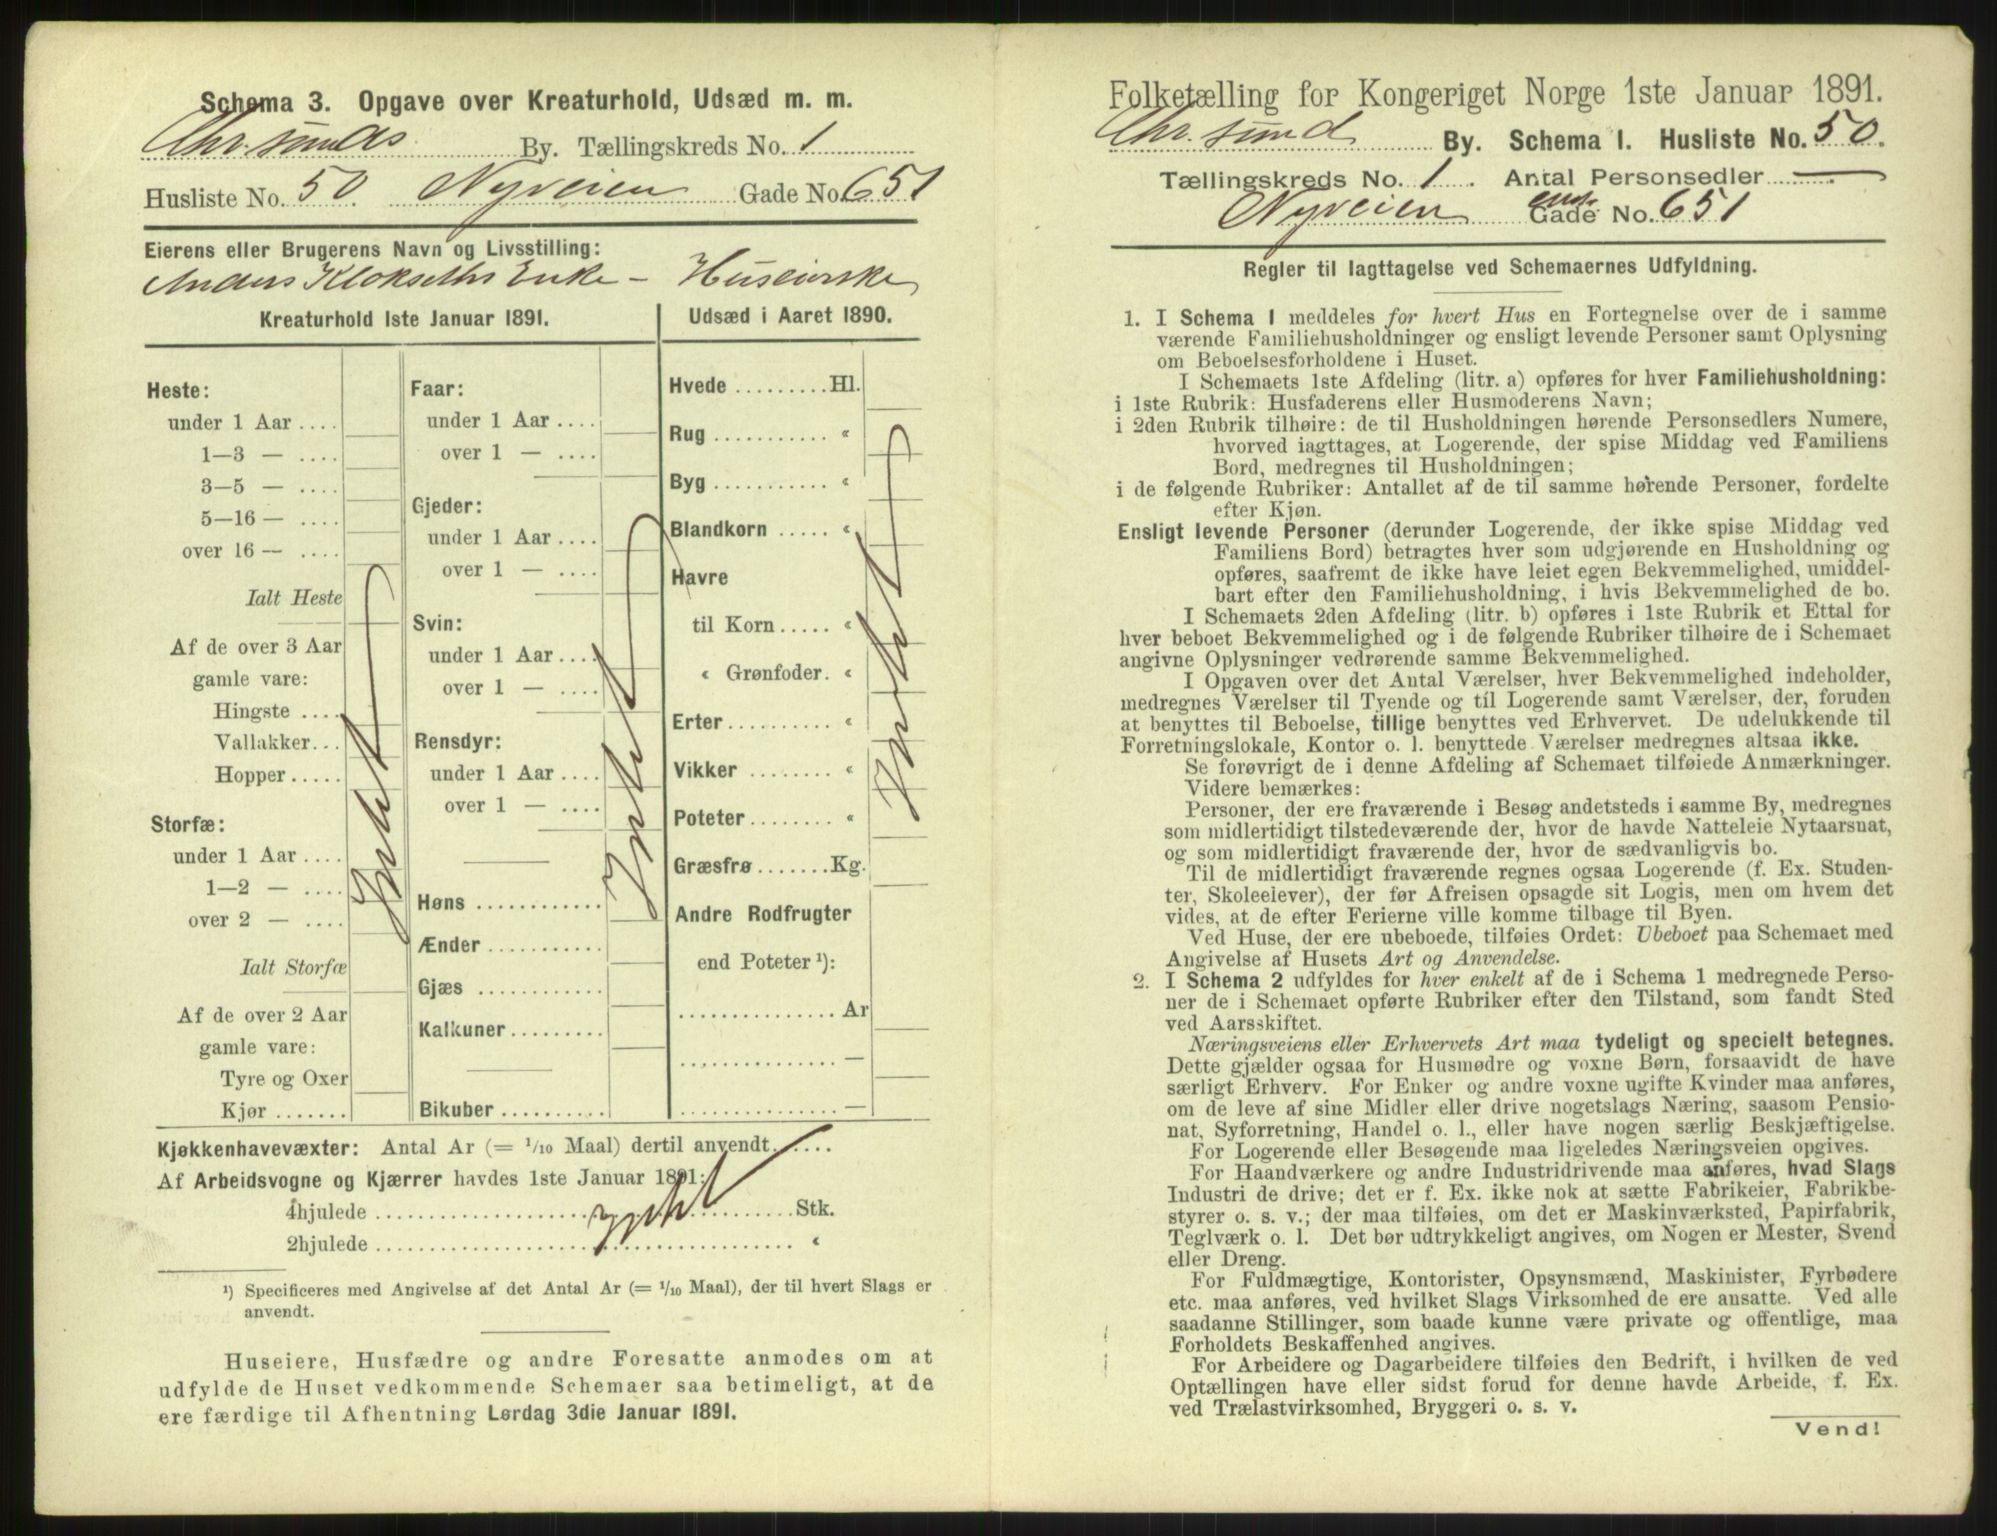 Schema 3. Opgave over Kreaturhold, Udsæd m. m.
Chr.sunds By. Tællingskreds No. 1
Husliste No. 50. Nyveien Gade No. 651
Eierens eller Brugerens Navn og Livsstilling:
Anders Klokseths Enke – Huseierske
Kreaturhold 1ste Januar 1891.
Heste:
under 1 Aar ....
1—3 — ....
3—5 — ....
5—16 — ....
over 16 — ....
Ialt Heste
Af de over 3 Aar
gamle vare:
Hingste ....
Vallakker...
Hopper .....
Storfæ:
under 1 Aar ....
1—2 — ....
over 2 — ....
Ialt Storfæ
Af de over 2 Aar
gamle vare:
Tyre og Oxer
Kjør .......
Intet
Faar:
under 1 Aar ....
over 1 — ....
Gjeder:
under 1 Aar ....
over 1 — ....
Svin:
under 1 Aar ....
over 1 — ....
Rensdyr:
under 1 Aar ....
over 1 — ....
Høns ............
Ænder ...........
Gjæs ............
Kalkuner .........
Bikuber ..........
Intet
Udsæd i Aaret 1890.
Hvede ......... Hl.
Rug ........... «
Byg ........... «
Blandkorn ..... «
Havre
til Korn ..... «
« Grønfoder. «
Erter .......... «
Vikker ........ «
Poteter ........ «
Græsfrø ....... Kg.
Andre Rodfrugter
end Poteter ¹):
............... Ar
............... —
............... —
Intet
Kjøkkenhavevæxter: Antal Ar (= 1/10 Maal) dertil anvendt......
Af Arbeidsvogne og Kjærrer havdes 1ste Januar 1891:
4hjulede ........................ Stk.
2hjulede ........................ «
Intet
¹) Specificeres med Angivelse af det Antal Ar (= 1/10 Maal), der til hvert Slags er
anvendt.
Huseiere, Husfædre og andre Foresatte anmodes om at
udfylde de Huset vedkommende Schemaer saa betimeligt, at de
ere færdige til Afhentning Lørdag 3die Januar 1891.
Folketælling for Kongeriget Norge 1ste Januar 1891.
Chr.sund By. Schema 1. Husliste No. 50.
Tællingskreds No. 1. Antal Personsedler —
Nyveien Gade No. 651
Regler til Iagttagelse ved Schemaernes Udfyldning.
1. I Schema 1 meddeles for hvert Hus en Fortegnelse over de i samme
værende Familiehusholdninger og ensligt levende Personer samt Oplysning
om Beboelsesforholdene i Huset.
I Schemaets 1ste Afdeling (litr. a) opføres for hver Familiehusholdning:
i 1ste Rubrik: Husfaderens eller Husmoderens Navn;
i 2den Rubrik tilhøire: de til Husholdningen hørende Personsedlers Numere,
hvorved iagttages, at Logerende, der spise Middag ved Familiens
Bord, medregnes til Husholdningen;
i de følgende Rubriker: Antallet af de til samme hørende Personer, fordelte
efter Kjøn.
Ensligt levende Personer (derunder Logerende, der ikke spise Middag ved
Familiens Bord) betragtes hver som udgjørende en Husholdning og
opføres, saafremt de ikke have leiet egen Bekvemmelighed, umiddel-
bart efter den Familiehusholdning, i hvis Bekvemmelighed de bo.
I Schemaets 2den Afdeling (litr. b) opføres i 1ste Rubrik et Ettal for
hver beboet Bekvemmelighed og i de følgende Rubriker tilhøire de i Schemaet
angivne Oplysninger vedrørende samme Bekvemmelighed.
I Opgaven over det Antal Værelser, hver Bekvemmelighed indeholder,
medregnes Værelser til Tyende og til Logerende samt Værelser, der, foruden
at benyttes til Beboelse, tillige benyttes ved Erhvervet. De udelukkende til
Forretningslokale, Kontor o. l. benyttede Værelser medregnes altsaa ikke.
Se forøvrigt de i denne Afdeling af Schemaet tilføiede Anmærkninger.
Videre bemærkes:
Personer, der ere fraværende i Besøg andetsteds i samme By, medregnes
som midlertidigt tilstedeværende der, hvor de havde Natteleie Nytaarsnat,
og som midlertidigt fraværende der, hvor de sædvanligvis bo.
Til de midlertidigt fraværende regnes ogsaa Logerende (f. Ex. Studen-
ter, Skoleelever), der før Afreisen opsagde sit Logis, men om hvem det
vides, at de efter Ferierne ville komme tilbage til Byen.
Ved Huse, der ere ubeboede, tilføies Ordet: Ubeboet paa Schemaet med
Angivelse af Husets Art og Anvendelse.
2. I Schema 2 udfyldes for hver enkelt af de i Schema 1 medregnede Perso-
ner de i Schemaet opførte Rubriker efter den Tilstand, som fandt Sted
ved Aarsskiftet.
Næringsveiens eller Erhvervets Art maa tydeligt og specielt betegnes.
Dette gjælder ogsaa for Husmødre og voxne Børn, forsaavidt de have
særligt Erhverv. For Enker og andre voxne ugifte Kvinder maa anføres,
om de leve af sine Midler eller drive nogetslags Næring, saasom Pensio-
nat, Syforretning, Handel o. l., eller have nogen særlig Beskjæftigelse.
For Logerende eller Besøgende maa ligeledes Næringsveien opgives.
For Haandværkere og andre Industridrivende maa anføres, hvad Slags
Industri de drive; det er f. Ex. ikke nok at sætte Fabrikeier, Fabrikbe-
styrer o. s. v.; der maa tilføies, om det er Maskinværksted, Papirfabrik,
Teglværk o. l. Det bør udtrykkeligt angives, om Nogen er Mester, Svend
eller Dreng.
For Fuldmægtige, Kontorister, Opsynsmænd, Maskinister, Fyrbødere
etc. maa anføres, ved hvilket Slags Virksomhed de ere ansatte. Ved alle
saadanne Stillinger, som baade kunne være private og offentlige, maa
Forholdets Beskaffenhed angives.
For Arbeidere og Dagarbeidere tilføies den Bedrift, i hvilken de ved
Optællingen have eller sidst forud for denne havde Arbeide, f. Ex.
ved Trælastvirksomhed, Bryggeri o. s. v.
Vend!